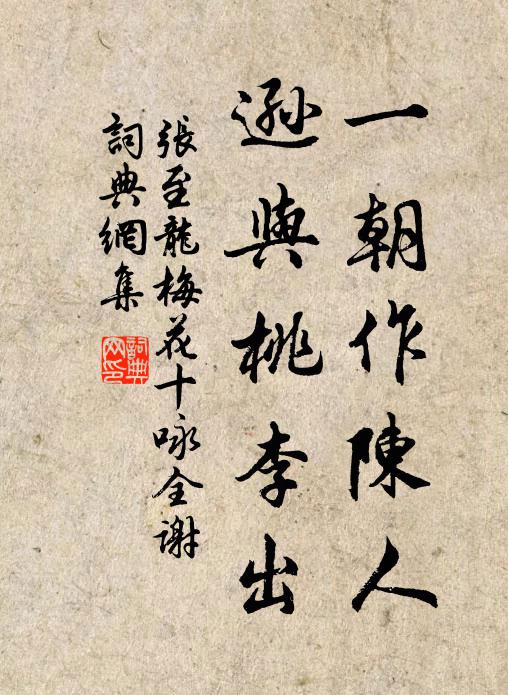 一朝作陳人
遜與桃李出
張至龍梅花十咏全謝
詞典網集
詞典網印